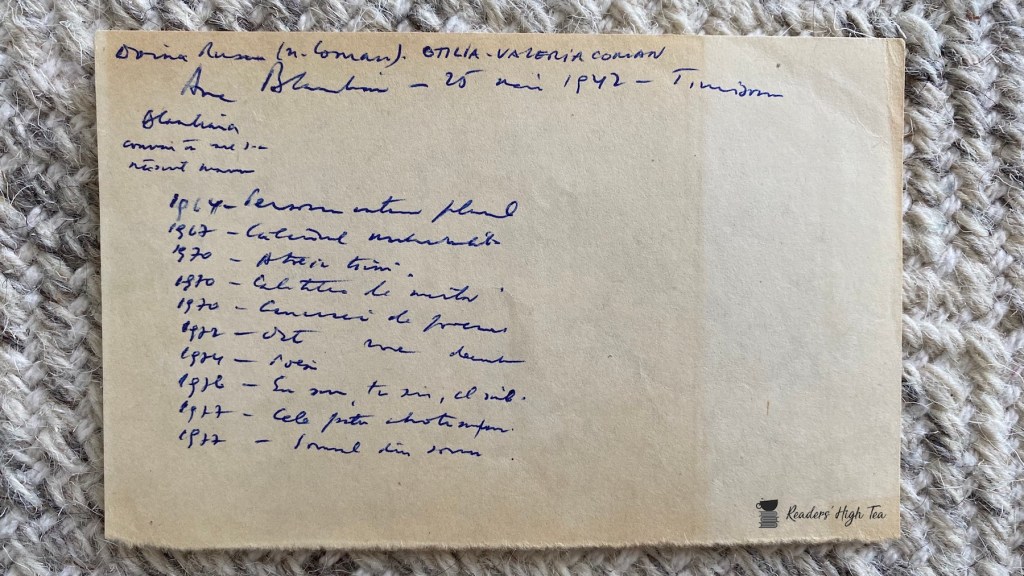 Doina Rusu (n. Coman). OTILIA-VALERIA COMAN
Ana Blandiana – 25 mai 1942 – Timișoara
Blandiana
comuna în care s-a
născut mama
1964 – Persoana întâia plural
1967 – Călcâiul vulnerabil
1970 – A treia taină.
1970 – Calitatea de martor
1970 – Cincizeci de poeme
1972 – Oct nov decemb
1974 – Poezii
1976 – Eu scriu, tu scrii, el scrie.
1977 – Cele patru anotimpuri.
1977 – Somnul din somn.
Readers' High Tea